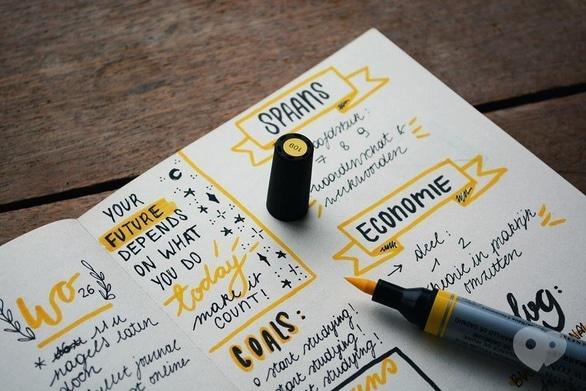 Wo 26
11u
nagels laten
doen
bullet journal
YOUR
FUTURE
DEPENDS
ON WHAT
YOU DO
today
make it
COUNT!
GOALS:
start studying!
start studying!
start studying!
SPAANS
7 8 9
woordenschat &
werkwoorden
ECONOMIE
deel:
1 2
theorie in praktijk
omzetten
109